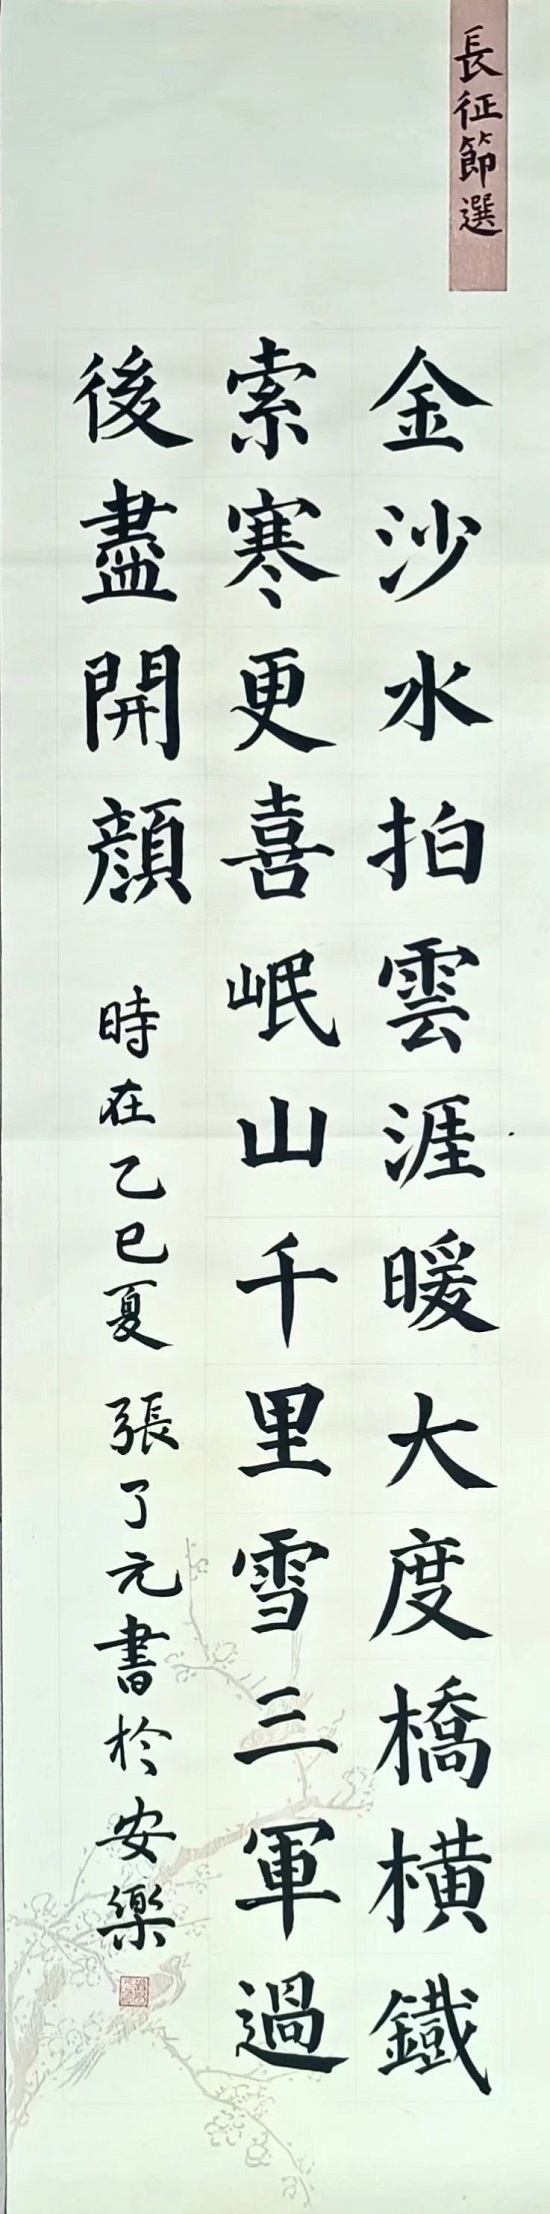 長征節選
金沙水拍雲涯暖大度橋橫鐵
索寒更喜岷山千里雪三軍過
後盡開顏
時在乙巳夏 張了元書於安樂